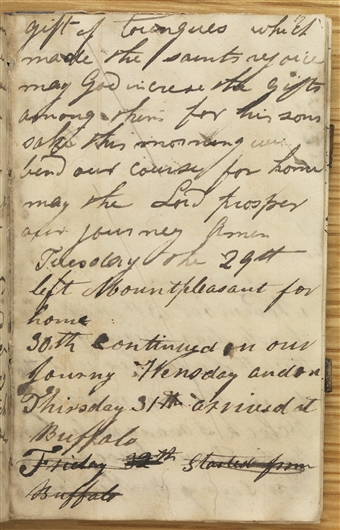 gift of toungues which
made the saints rejoice
may God increse the gifts
among them for his sons
sake this morning we
bend our course for home
may the Lord prosper
our journey Amen
Tuesday the 29th
left Mountpleasant for
home
30th continued on our
Journy Wensday and on
Thirsday 31th arrived at
Buffalo
Friday 32th started from
Buffalo